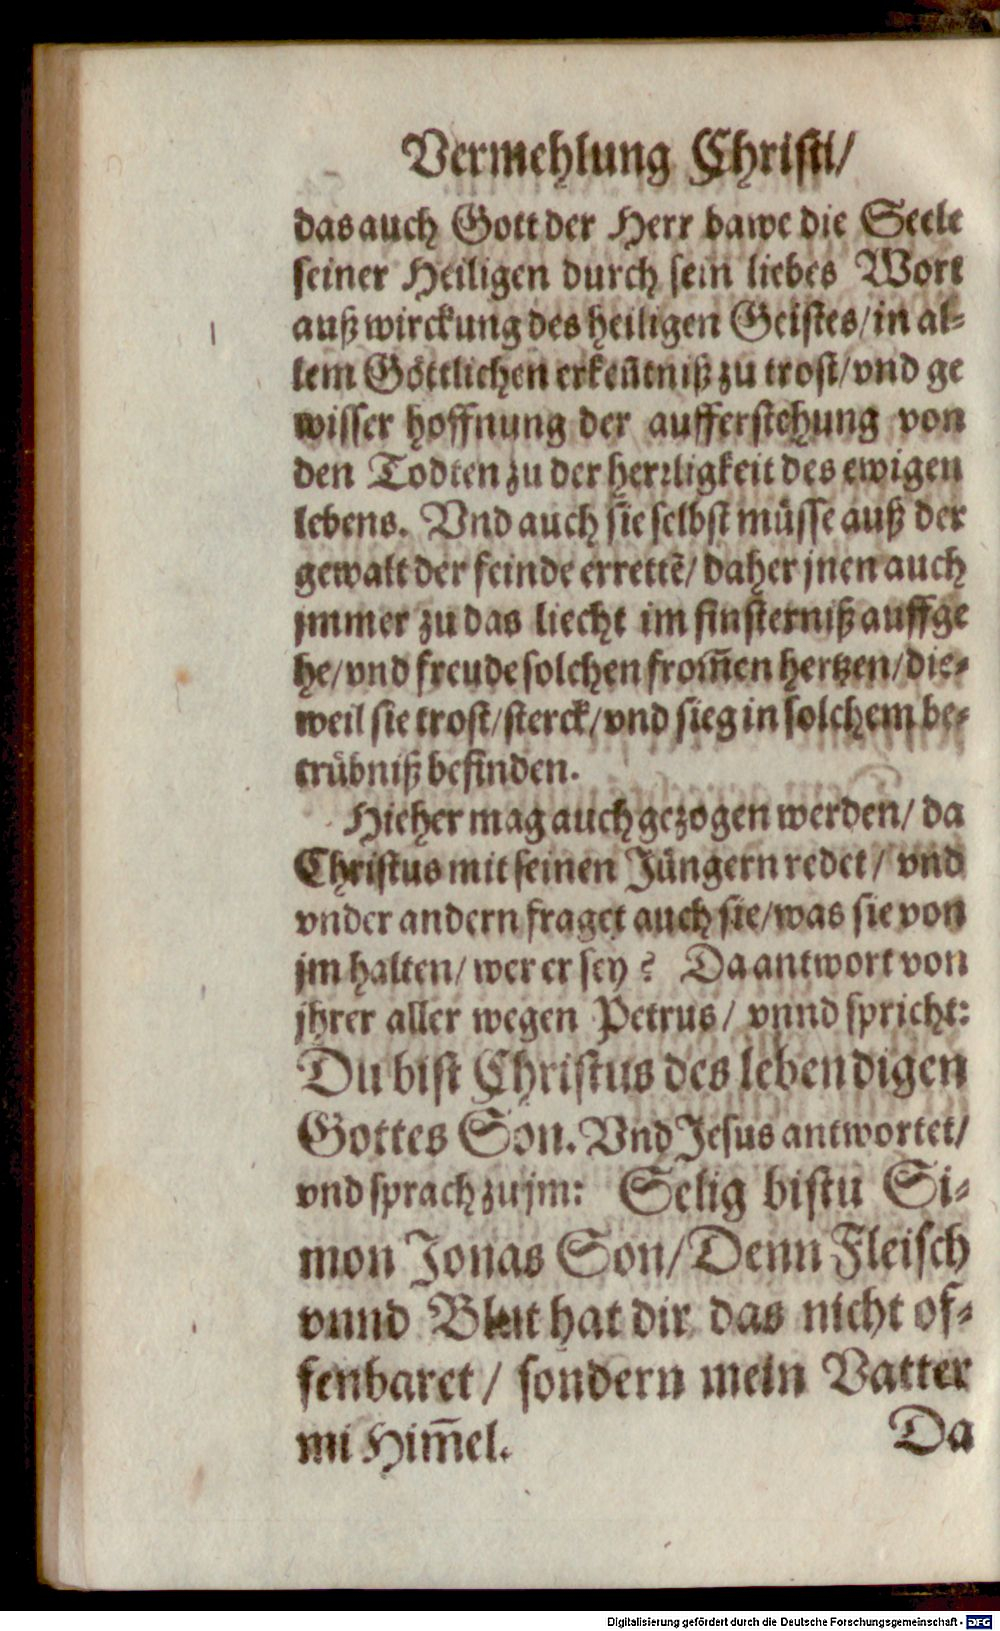 Vermehlung Christi/
das auch Gott der Herr bawe die Seele
seiner Heiligen durch sein liebes Wort
auß wirckung des heiligen Geistes/in al-
lem Göttlichen erkeñtniß zu trost/vnd ge
wisser hoffnung der aufferstehung von
den Todten zu der herrligkeit des ewigen
lebens. Vnd auch sie selbst müsse auß der
gewalt der feinde errettē/ daher jnen auch
jmmer zu das liecht im finsterniß auffge
he/vnd freude solchen from̃en hertzen/die-
weil sie trost/sterck/vnd sieg in solchem be-
trübniß befinden.
Hieher mag auch gezogen werden/ da
Christus mit seinen Jüngern redet/ vnd
vnder andern fraget auch sie/was sie von
jm halten/ wer er sey? Da antwort von
jhrer aller wegen Petrus/ vnnd spricht:
Du bist Christus des lebendigen
Gottes Son. Vnd Jesus antwortet/
vnd sprach zu jm: Selig bistu Si-
mon Jonas Son/Denn Fleisch
vnnd Blut hat dir das nicht of-
fenbaret/ sondern mein Vatter
mi Him̃el.
Da
Digitalisierung gefördert durch die Deutsche Forschungsgemeinschaft - DFG